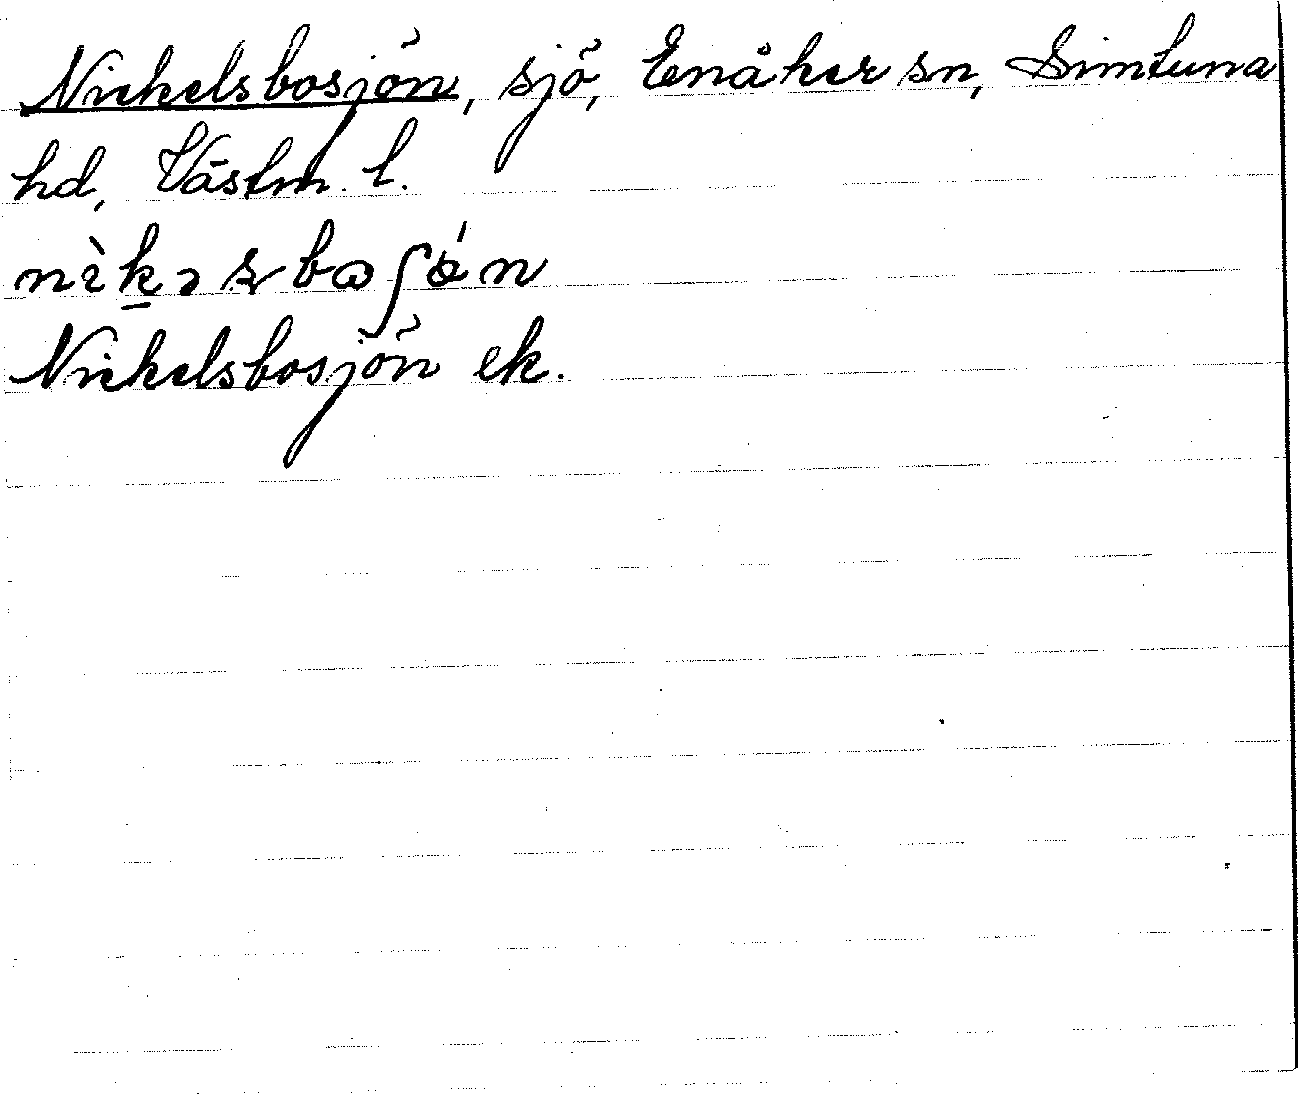 Nickelsbosjön, sjö, Enåker sn, Simtuna
hd, Västm. l.
nìk̠ǝsbɷʃǿn
Nickelsbosjön ek.